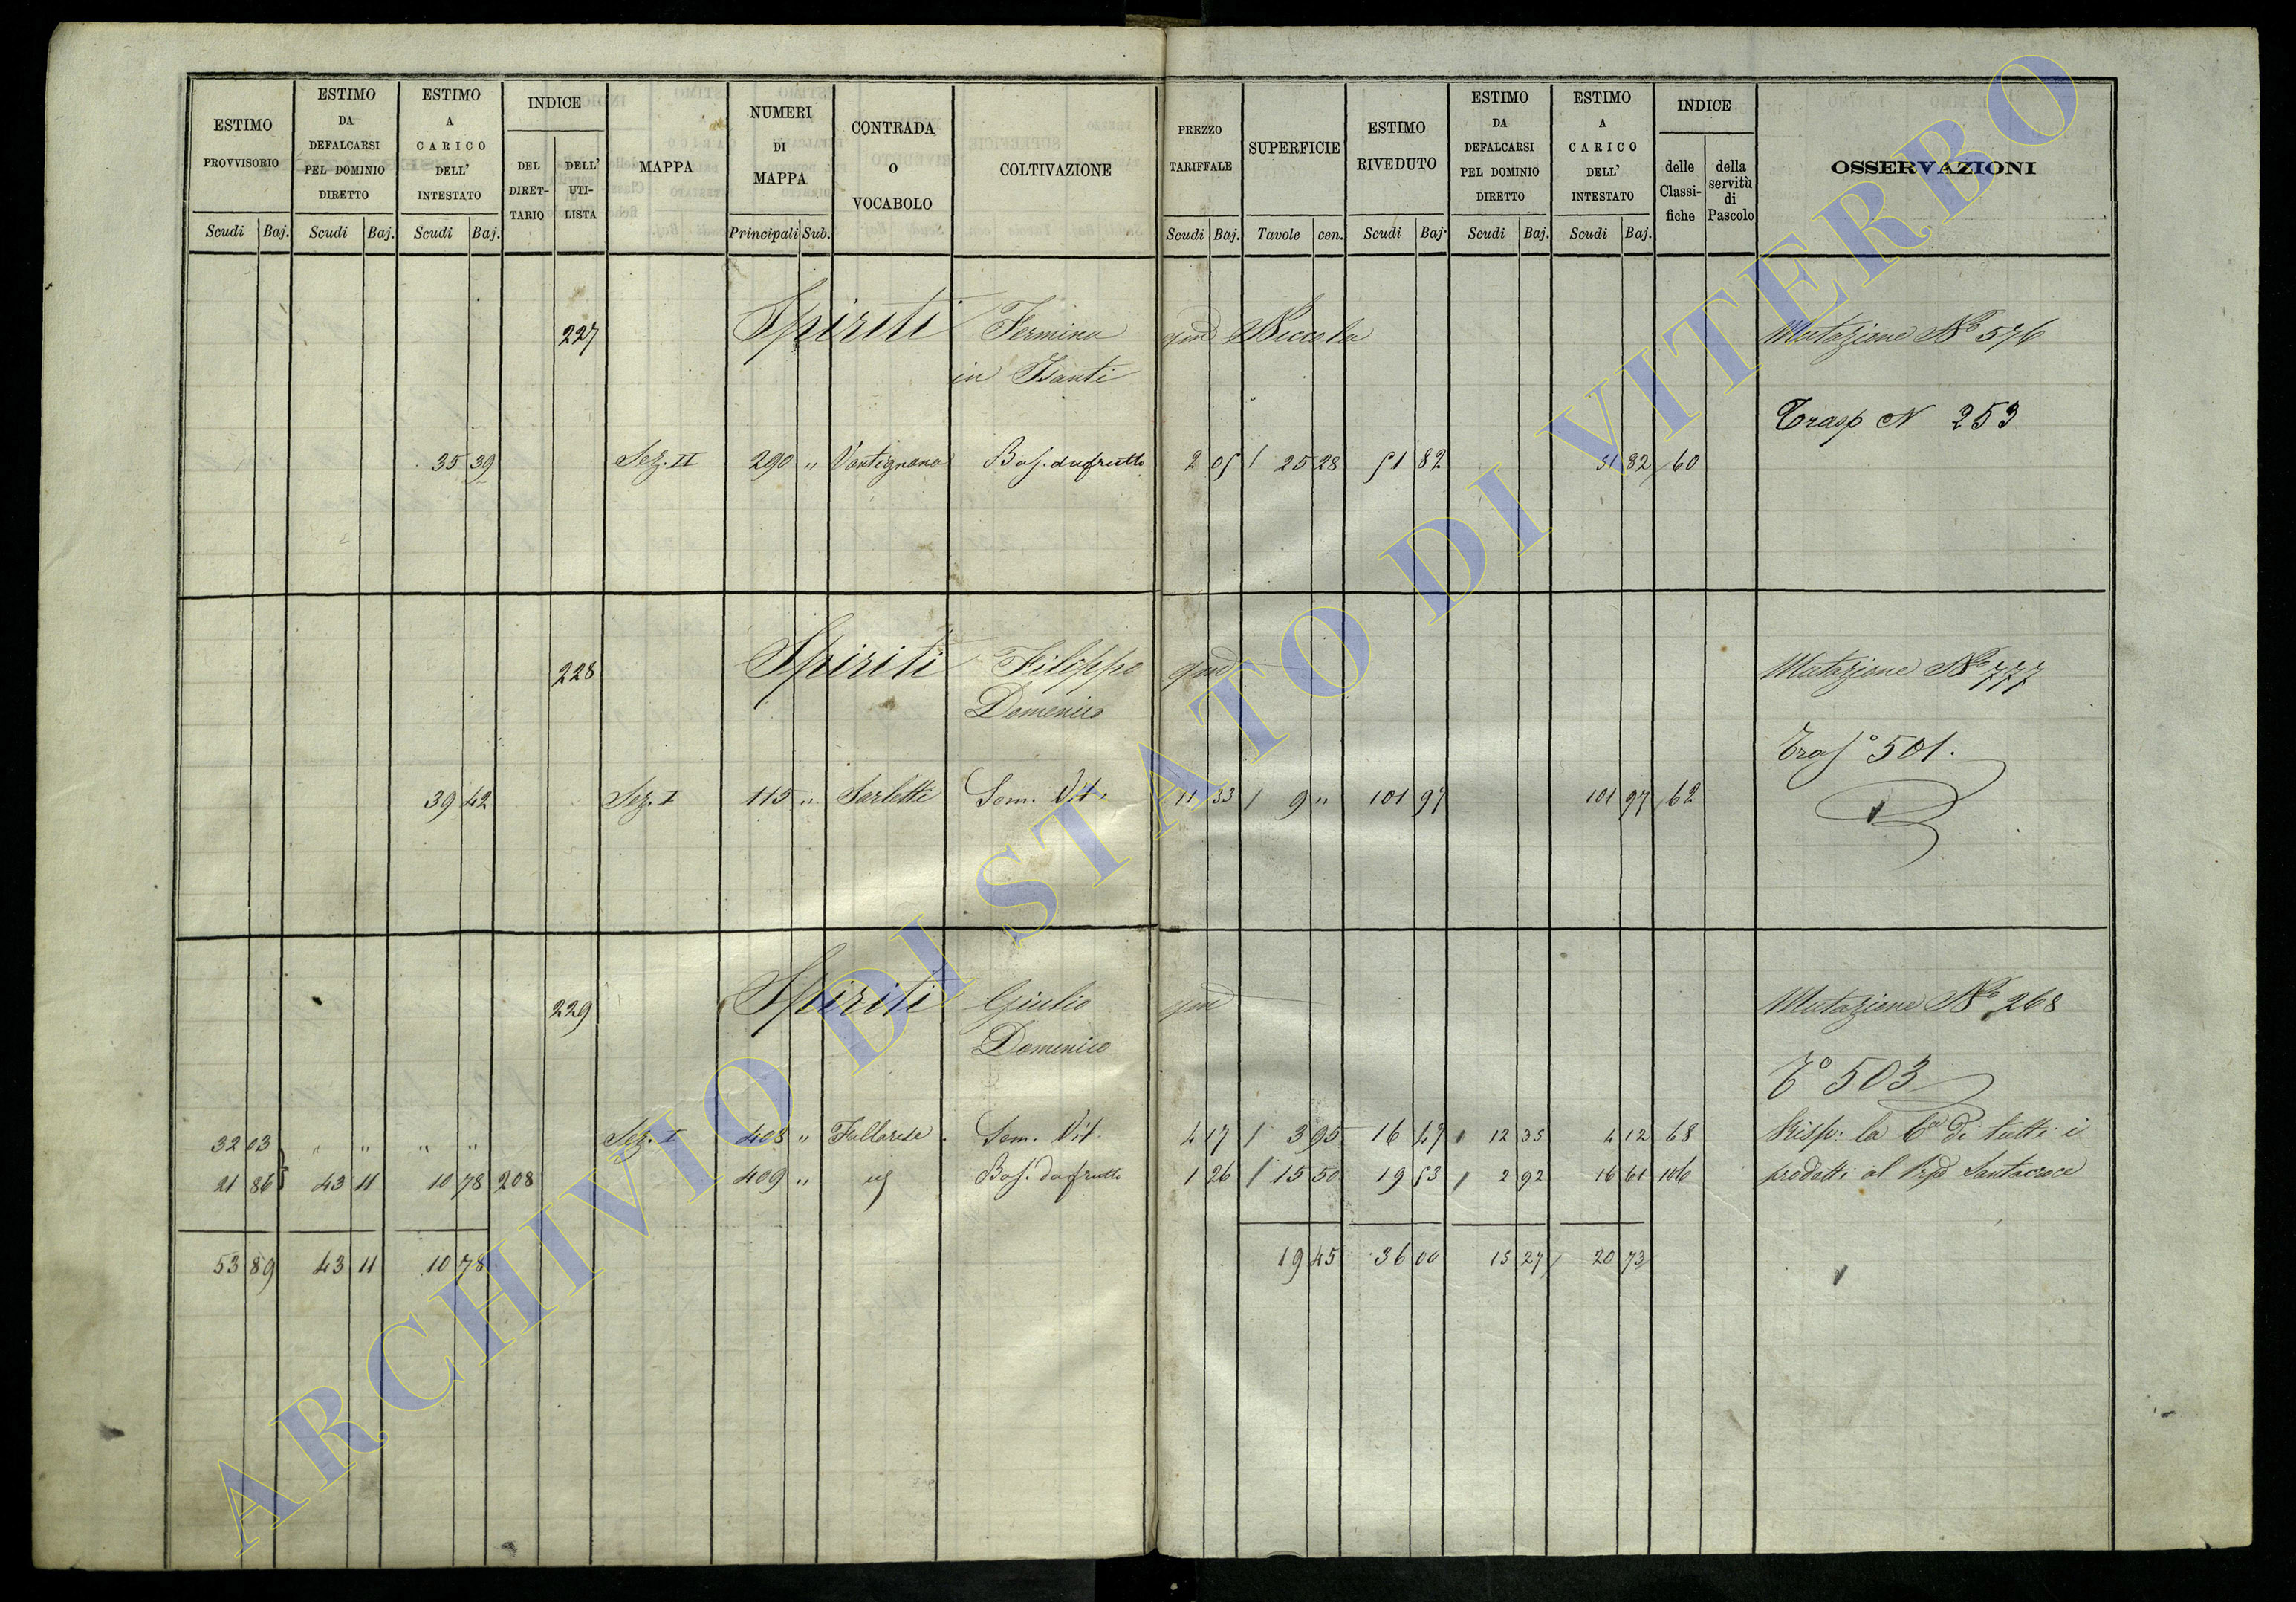 ESTIMO PROVVISORIO | ESTIMO DA DEFALCARSI PEL DOMINIO DIRETTO | ESTIMO A CARICO DELL' INTESTATO | INDICE DEL DIRET-TARIO | DELL' UTI-LISTA | MAPPA | NUMERI DI MAPPA | CONTRADA O VOCABOLO | COLTIVAZIONE | PREZZO TARIFFALE | SUPERFICIE | ESTIMO RIVEDUTO | ESTIMO DA DEFALCARSI PEL DOMINIO DIRETTO | ESTIMO A CARICO DELL' INTESTATO | INDICE delle Classi-fiche | della servitù di Pascolo | OSSERVAZIONI
Scudi Baj. | Scudi Baj. | Scudi Baj. | Principali Sub. | Scudi Baj. | Tavole cen. | Scudi Baj. | Scudi Baj. | Scudi Baj.
227 Spiriti Fermina qm Niccola Mutazione No 576
in Santi
Trasp N 253
35 39 Sez. II 290 " Vantignano Bos. da frutto 2 05 25 28 51 82 51 82 60
228 Spiriti Filippo qm Mutazione No 777
Domenico
Tras.o 501.
39 42 Sez. I 115 " Sarletti Sem. Vit. 11 33 9 " 101 97 101 97 62
229 Spiriti Giulio qm Mutazione No 268
Domenico
To 503
32 03 " " " " Sez. I 408 " Fullarese Sem. Vit. 4 17 3 95 16 47 12 35 4 12 68 Risp: la di tutti i
21 86 43 11 10 78 208 409 " Bos. da frutto 1 26 15 50 19 53 2 92 16 61 106 prodotti al Santacroce
53 89 43 11 10 78 19 45 36 00 15 27 20 73
ARCHIVIO DI STATO DI VITERBO